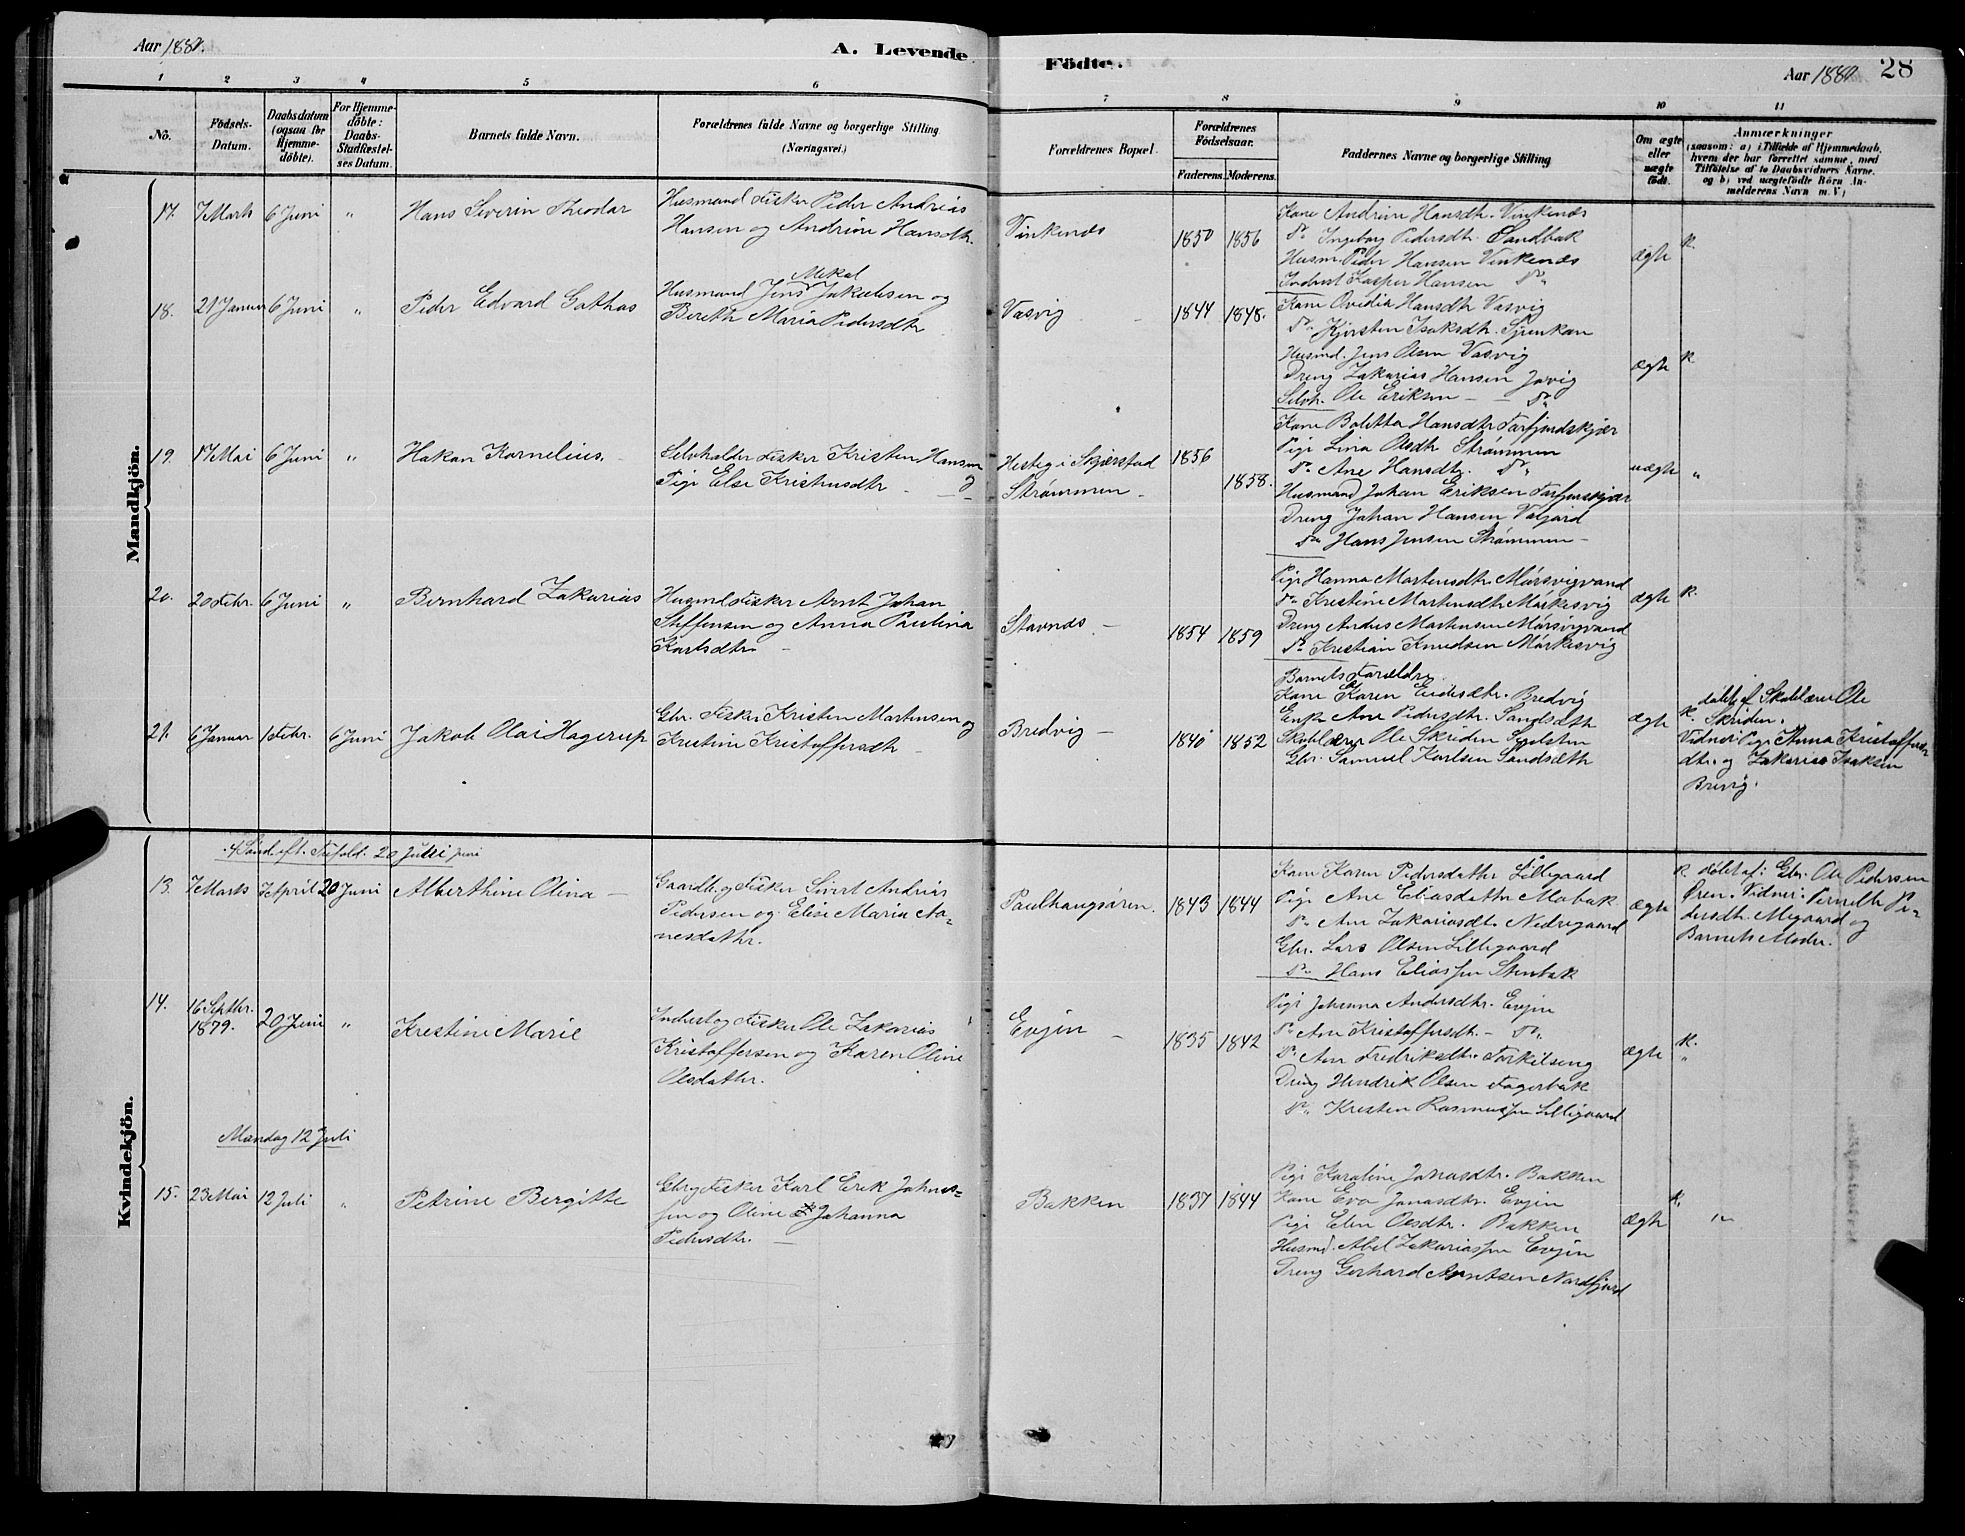 Aar 1880.
A. Levende
Födte.
Aar 1880
28
1 2 3 4 5 6 7 8 9 10 11
No.
Födsels-
Datum.
Daabsdatum
(ogsaa for
Hjemme-
döbte).
For Hjemme-
döbte:
Daabs-
Stadfæstel-
ses Datum.
Barnets fulde Navn.
Forældrenes fulde Navne og borgerlige Stilling
(Næringsvei.)
Forældrenes Bopæl.
Forældrenes
Födselsaar.
Faderens. Moderens.
Faddernes Navne og borgerlige Stilling
Om ægte
eller
uægte
födt.
Anmærkninger
(saasom: a) i Tilfælde af Hjemmedaab,
hvem der har forrettet samme, med
Tilföielse af to Daabsvidners Navne.
og b) ved uægtefödte Börn An-
melderens Navn m. V.)
Mandkjön.
17. 7 Marts 6 Juni " Hans Severin Theodor
Husmand Fisker Peder Andreas
Hansen og Andrine Hansdtr.
Vinkenes
1850 1856
Kone Andrine Hansdtr. Vinkenes
do Ingeborg Pedersdtr. Sandbak
Husm. Peder Hansen Vinkenes
Inderst Kasper Hansen do
ægte
K.
18. 21 Januar 6 Juni " Peder Edvard Gathas
Mekal
Husmand Jens Jakobsen og
Bereth Maria Pedersdtr
Vasvig
1844 1848.
Kone Ovidia Hansdtr Vasvig
do Kjersten Isaksdtr.
Husmd. Jens Olsen Vasvig
Dreng Zakarias Hansen
Selvh. Ole Eriksen do
ægte
K
19. 17 Mai 6 Juni " Hakon Kornelius.
Selvholder Fisker Kristen Hansen
Pige Else Kristensdtr
og
Hesteg i Skjerstad
Strømmen
1856
1858.
Kone Boletta Hansdtr
Pige Lina Olsdtr Strømmen
do Ane Hansdtr. do
Husmand Johan Eriksen
Dreng Johan Hansen
do Hans Jensen Strømmen
uægte
"
20. 20 Febr. 6 Juni " Bernhard Zakarias
Husmd Fisker Arnt Johan
Steffensen og Anna Paulina
Karlsdtr
Stavnes
1854 1859
Pige Hanna Martensdtr Mórsvigvand
do Kristine Martensdtr Mórkesvig
Dreng Andreas Martensen Mórsvigvand
do Kristian Knudsen Mórkesvig
Barnets Forældre
ægte
K.
21. 6 Januar 1 Febr. 6 Juni Jakob Olai Hagerup
Gbr. Fisker Kristen Martensen og
Kristine Kristoffersdtr
Bredvig
1840 1852
Kone Karen Endresdtr. Bredvig
Enke Ane Pedersdtr. Sandsæth
Skolelærer Ole Skriden
Gbr. Samuel Karlsen Sandsæth
ægte
K.
döbt af Skolelærer Ole
Skriden.
Vidner: Pige Anna Kristoffers-
dtr. og Zakarias Isaksen
Brevig.
Kvindekjön.
4 Sönd. eft. Trefold. 20 Juni
13. 7 Marts 3 April 20 Juni Alberthine Olina
Gaardb. og Fisker Sivert Andreas
Pedersen og Elise Maria Aa-
nesdatter.
Paulhaugsören.
1843 1844
Kone Karen Pedersdatter Lillegaard
Pige Ane Eliasdatter Mobak
do Ane Zakariasdtr Nedregaard
Gbr. Lars Olsen Lillegaard
do Hans Eliassen Stenbak
ægte
K döbt af: Gbr. Ole Pedersen
Øren. Vidner: Pernelle Pe-
dersdtr. Migaard og
Barnets Moder.
14. 16 Septbr. 1879. 20 Juni " Krestine Marie
Inderst og Fisker Ole Zakarias
Kristoffersen og Karen Oline
Olsdatter.
Evjen
1835 1842
Pige Johanna Andersdtr. Evjen
do Ane Kristoffersdtr. do
do Ane Fredriksdtr. Torkilseng
Dreng Hendrik Olsen Fagerbak
do Kresten Rasmussen Lillegaard
ægte
K.
"
Mandag 12 Juli
15. 23 Mai 12 Juli " Petrine Bergitte
Gbr og Fisker Karl Erik Johns-
sen og Oline Johanna
Pedersdtr.
Bakken
1837 1844
Pige Karoline Jonasdtr. Bakken
Kone Eva Jonasdtr. Evjen
Pige Elen Olsdtr. Bakken
Husmd. Abel Zakariassen Evjen
Dreng Gerhard Arntsen Nordfjord
ægte
K
"